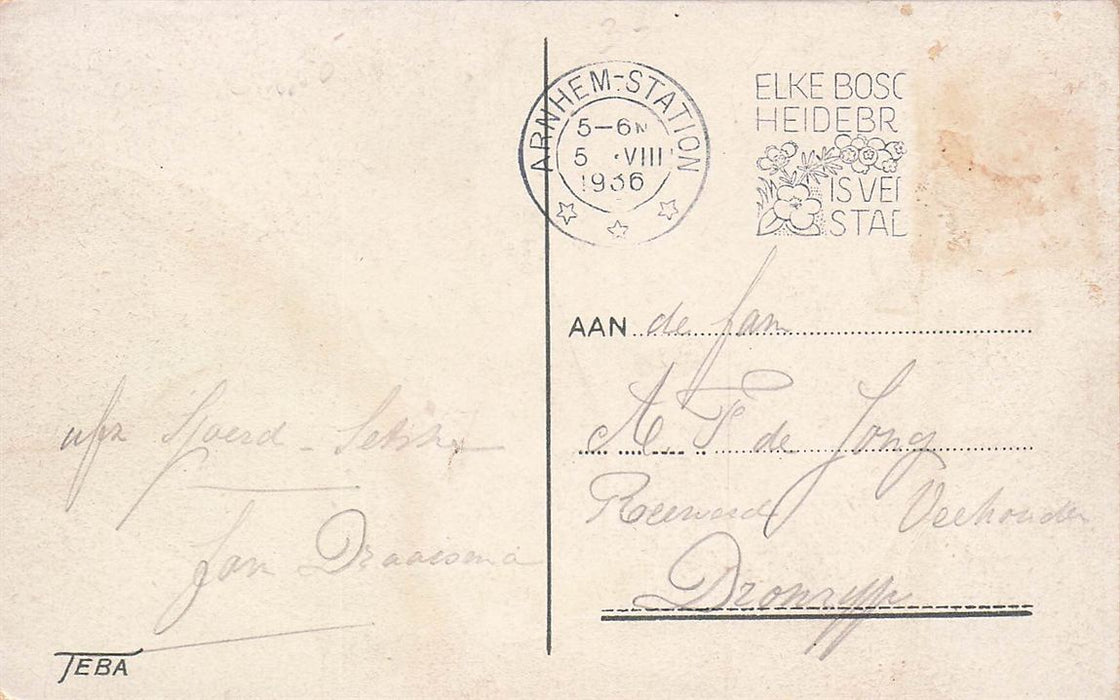 ARNHEM-STATION
5-6N
5 VIII
1936
ELKE BOSC
HEIDEBR
IS VE
STAD
AAN de fam
A. P. de Jong
Veehouder
Dronrijp
afz Sjoerd -
Jan Draaisma
TEBA